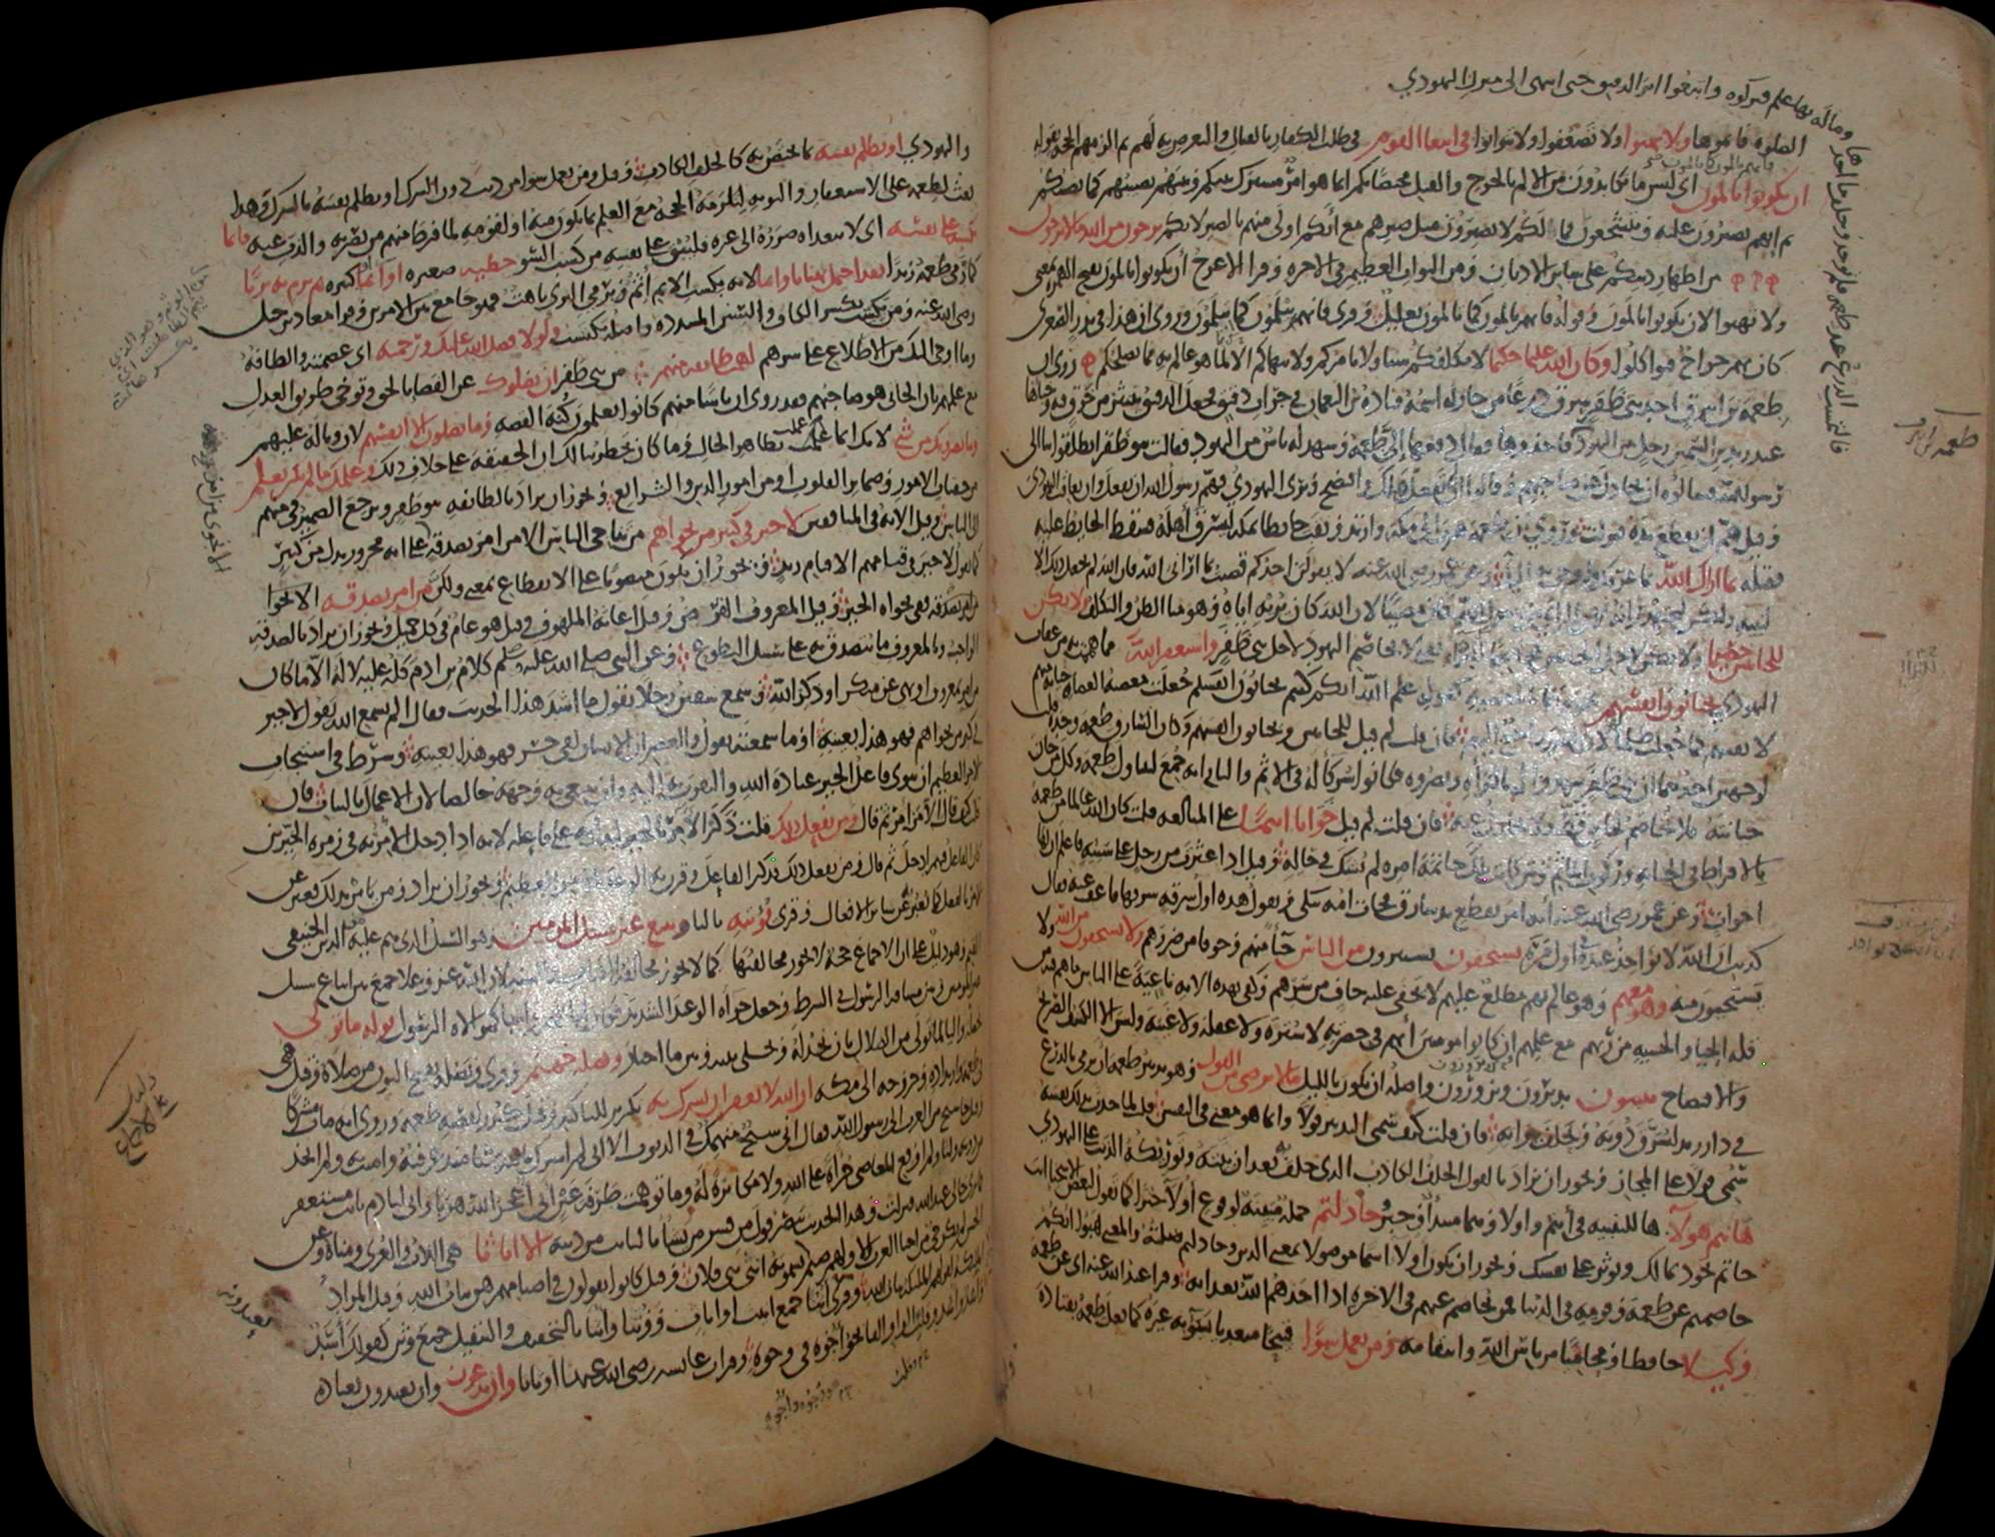 فالتمست الدرع عند طعمة فلم توجد وحلف ما اخذها
وماله بها علم فتركوه واتبعوا اثر الدقيق حتى انتهى الى منزل اليهودي
الصلوة فاتموها ولا تهنوا ولا تضعفوا ولا تتوانوا في ابتغا القوم في طلب الكفار بالقتال والتعرض به لهم ثم الزمهم الحجة بقوله
ان تكونوا تالمون اي ليس ما تكابدون من الالم بالجرح والقتل مختصا بكم انما هو امر مشترك بينكم وبينهم يصيبهم كما يصيبكم
ثم انهم يصبرون عليه ويتشجعون فما لكم لا تصبرون مثل صبرهم مع انكم اولى منهم بالصبر لانكم ترجون من الله ما لا يرجون
من اظهار دينكم على ساير الاديان ومن الثواب العظيم في الاخرة وقرا الاعرج ان تكونوا تالمون بفتح الهمزة بمعنى
ولا تهنوا لان تكونوا تالمون وقوله فانهم يالمون كما تالمون تعليل وقرى فانهم ييلمون كما تيلمون وروي ان هذا في بدر الصغرى
كان بهم جراح فتواكلوا وكان الله عليما حكيما لا يكلفكم شيئا ولا يامركم ولا ينهاكم الا لما هو عالم به مما يصلحكم روي ان
طعمة بن ابيرق احد بني ظفر سرق درعا من جار له اسمه قتادة بن النعمان في جراب دقيق فجعل الدقيق ينتثر من خرق فيه وخباها
عند زيد بن السمين رجل من اليهود فاخذوها فقال دفعها الى طعمة وشهد له ناس من اليهود فقالت بنو ظفر انطلقوا بنا الى
رسول الله فسالوه ان يجادل عن صاحبهم وقالوا ان لم تفعل هلك وافتضح وبرى اليهودي فهم رسول الله ان يفعل وان يعاقب اليهودي
وقيل هم ان يقطع يده فنزلت وروي ان طعمة هرب الى مكة وارتد ونقب حايطا بمكة ليسرق اهله فسقط الحايط عليه
فقتله بما اراك الله بما عرفك واوحى به اليك وعن عمر رضي الله عنه لا يقولن احدكم قضيت بما اراني الله فان الله لم يجعل ذلك الا
لنبيه ولكن ليجتهد رايه لان الراي من رسول الله كان مصيبا لان الله كان يريه اياه وهو منا الظن والتكلف ولا تكن
للخاينين خصيما ولا تكن لاجل الخاينين مخاصما للبراء يعني لا تخاصم اليهود لاجل بني ظفر واستغفر الله مما هممت به من عقاب
اليهودي يختانون انفسهم يخونونها بالمعصية كقوله علم الله انكم كنتم تختانون انفسكم جعلت معصية العصاة خيانة منهم
لانفسهم كما جعلت ظلما لها لان الضرر راجع اليهم فان قلت لم قيل للخاينين ويختانون انفسهم وكان السارق طعمة وحده قلت
لوجهين احدهما ان بني ظفر شهدوا له بالبراة ونصروه فكانوا شركا له في الاثم والثاني انه جمع ليتناول طعمة وكل من خان
خيانته فلا تخاصم لخاين قط ولا تجادل عنه فان قلت لم قيل خوانا اثيما على المبالغة قلت كان الله عالما من طعمة
بالافراط في الخيانة وركوب الماثم ومن كانت تلك خاتمة امره لم يشك في حاله وقيل اذا عثرت من رجل على سيئة فاعلم ان لها
اخوات وعن عمر رضي الله عنه انه امر بقطع يد سارق فجات امه تبكي وتقول هذه اول سرقة سرقها فاعف عنه فقال
كذبت ان الله لا يواخذ عبده في اول مرة يستخفون يستترون من الناس حيا منهم وخوفا من ضررهم ولا يستخفون من الله ولا
يستحيون منه وهو معهم وهو عالم بهم مطلع عليهم لا يخفى عليه خاف من سرهم وكفى بهذه الاية ناعية على الناس ما هم فيه من
قلة الحيا والخشية من ربهم مع علمهم ان كانوا مومنين انهم في حضرته لا سترة ولا غفلة ولا غيبة وليس الا الكشف الصريح
والافتضاح يبيتون يدبرون ويزورون واصله ان يكون بالليل ما لا يرضى من القول وهو تدبير طعمة ان يرمي بالدرع
في دار زيد ليسرق دونه ويحلف ببراته فان قلت كيف سمي التدبير قولا وانما هو معنى في النفس قلت لما حدث بذلك نفسه
سمي قولا على المجاز ويجوز ان يراد بالقول الحلف الكاذب الذي حلف به بعد ان بيته وتوريكه الذنب على اليهودي
هانتم هولا ها للتنبيه في انتم واولا وهما مبتدا وخبر جادلتم جملة مبينة لوقوع اولا خبرا كما تقول لبعض الاسخيا انت
حاتم تجود بمالك وتوثر على نفسك ويجوز ان يكون اولا اسما موصولا بمعنى الذين وجادلتم صلته والمعنى هبوا انكم
خاصمتم عن طعمة وقومه في الدنيا فمن يخاصم عنهم في الاخرة اذا اخذهم الله بعذابه وقرا عبد الله عنه اي عن طعمة
وكيلا حافظا ومحاميا من باس الله وانتقامه ومن يعمل سوا قبيحا متعديا يسوء به غيره كما فعل طعمة بقتادة
طعمة بن ابيرق
واليهودي او يظلم نفسه بما يختص به كالحلف الكاذب وقيل ومن يعمل سوا من ذنب دون الشرك او يظلم نفسه بالشرك وهذا
بعث لطعمة على الاستغفار والتوبة لتلزمه الحجة مع العلم بما يكون منه او لقومه لما فرط منهم من نصرته والذب عنه فانما
يكسبه على نفسه اي لا يتعداه ضرره الى غيره فليبق على نفسه من كسب السو خطيئة صغيرة او اثما كبيرة ثم يرم به بريا
كما رمى طعمة زيدا فقد احتمل بهتانا واثما لانه بكسب الاثم اثم وبرمي البري باهت فهو جامع بين الامرين وقرا معاذ بن جبل
رضي الله عنه ومن يكسب بكسر الكاف والسين المشددة واصله يكتسب ولولا فضل الله عليك ورحمته اي عصمته والطافه
وما اوحى اليك من الاطلاع على سرهم لهمت طايفة منهم من بني ظفر ان يضلوك عن القضا بالحق وتوخي طريق العدل
مع علمهم بان الجاني هو صاحبهم فقد روي ان ناسا منهم كانوا يعلمون كنه القصة وما يضلون الا انفسهم لان وباله عليهم
وما يضرونك من شي لانك انما عملت بظاهر الحال وما كان يخطر ببالك ان الحقيقة على خلاف ذلك وعلمك ما لم تكن تعلم
من خفيات الامور وضماير القلوب او من امور الدين والشرايع ويجوز ان يراد بالطايفة بنو ظفر ويرجع الضمير في منهم
الى الناس وقيل الاية في المنافقين لا خير في كثير من نجواهم من تناجي الناس الا من امر بصدقة على انه مجرور بدل من كثير
كما تقول لا خير في قيامهم الا قيام زيد ويجوز ان يكون منصوبا على الانقطاع بمعنى ولكن من امر بصدقة
من امر بصدقة ففي نجواه الخير وقيل المعروف القرض وقيل اغاثة الملهوف وقيل هو عام في كل جميل ويجوز ان يراد بالصدقة
الواجب وبالمعروف ما يتصدق به على سبيل التطوع وعن النبي صلى الله عليه وسلم كلام بن ادم كله عليه لا له الا ما كان
من امر بمعروف او نهي عن منكر او ذكر الله وسمع سفين رجلا يقول ما اشد هذا الحديث فقال الم تسمع الله يقول لا خير
في كثير من نجواهم فهو هذا بعينه او ما سمعته يقول والعصر ان الانسان لفي خسر فهو هذا بعينه وشرط في استيجاب
الاجر العظيم ان ينوي فاعل الخير عبادة الله والتقرب به اليه وان يبتغي به وجهه خالصا لان الاعمال بالنيات فان
قلت كيف قال الا من امر ثم قال ومن يفعل ذلك قلت ذكر الامر بالخير ليدل به على فاعله لانه اذا دخل الامر به في زمرة الخيرين
كان الفاعل فيهم ادخل ثم قال ومن يفعل ذلك فذكر الفاعل وقرن به الوعد بالاجر العظيم ويجوز ان يراد ومن يامر بذلك فعبر عن
الامر بالفعل كما يعبر به عن ساير الافعال وقرى يوتيه باليا ويتبع غير سبيل المومنين وهو السبيل الذي هم عليه من الدين الحنيفي
القيم وهو دليل على ان الاجماع حجة لا يجوز مخالفتها كما لا يجوز مخالفة الكتاب والسنة لان الله عز وعلا جمع بين اتباع سبيل
غير المومنين وبين مشاقة الرسول في الشرط وجعل جزاه الوعيد الشديد فكان اتباعهم واجبا كموالاة الرسول نوله ما تولى
نجعله واليا لما تولى من الضلال بان نخذله ونخلي بينه وبين ما اختار ونصله جهنم وقرى ونصله بفتح النون من صلاه وقيل هي
في طعمة وارتداده وخروجه الى مكة ان الله لا يغفر ان يشرك به تكرير للتاكيد وقيل كرر لقصة طعمة وروي انه مات مشركا
وقيل جا شيخ من العرب الى رسول الله فقال اني شيخ منهمك في الذنوب الا اني لم اشرك بالله شيئا منذ عرفته وامنت به ولم اتخذ
من دونه وليا ولم اوقع المعاصي جراة على الله ولا مكابرة له وما توهمت طرفة عين اني اعجز الله هربا واني لنادم تايب مستغفر
فما ترى حالي عند الله فنزلت وهذا الحديث ينصر قول من فسر من يشا بالتايب من ذنبه الا اناثا هي اللات والعزى ومناة وعن
الحسن لم يكن حي من احيا العرب الا ولهم صنم يسمونه انثى بني فلان وقيل كانوا يقولون في اصنامهم هن بنات الله وقيل المراد
الملايكة لقولهم الملايكة بنات الله وقرى انثا جمع انيث او اناث ووثنا واثنا بالتخفيف والتثقيل جمع وثن كقولك اسد
واسد واسد وقلبت الواو الفا نحو اجوه في وجوه وقرات عايشة رضي الله عنها اوثانا وان يدعون وان يعبدون بعبادة